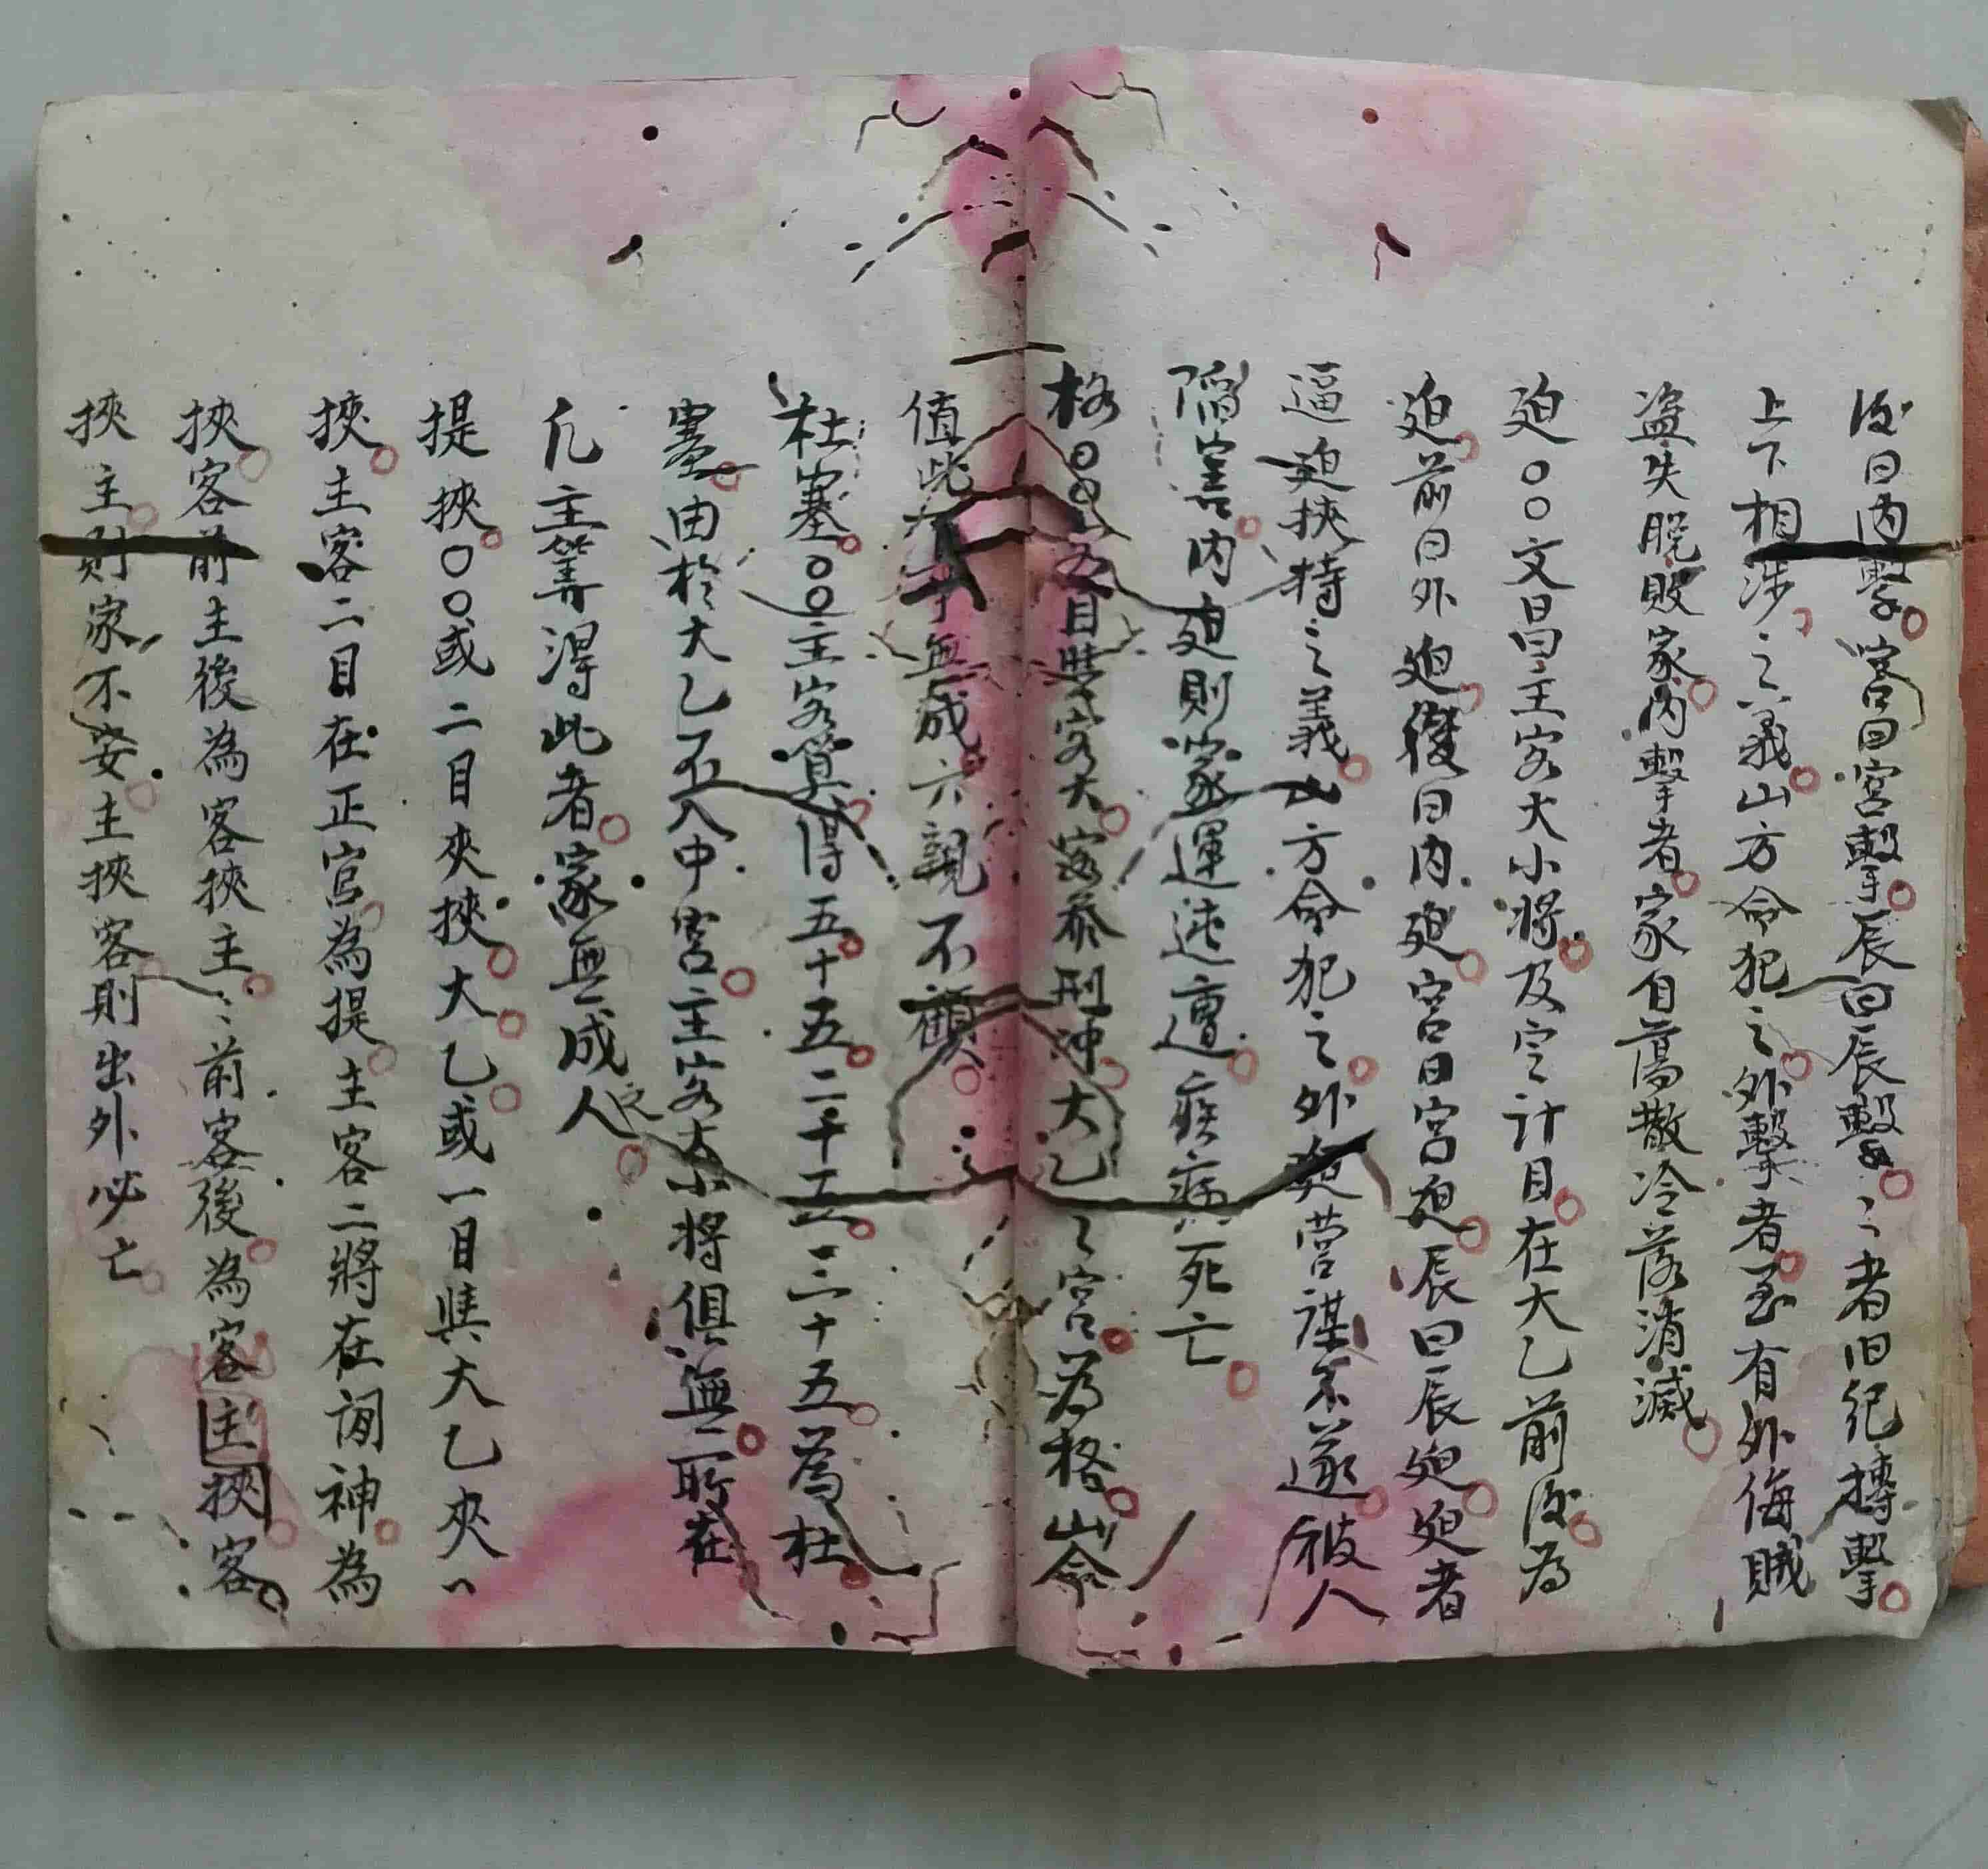 後曰内擊宮曰宮擊辰曰辰擊〻者旧紀摶擊
上下相涉之義山方命犯之外擊者至有外侮賊
盗失脫敗家内擊者家自蕩散冷落消滅
廹〇〇文昌主客大小將及定計目在大乙前後为
廹前曰外廹後曰内廹宮曰宮廹辰曰辰廹廹者
逼廹挾持之義山方命犯之外廹营謀不遂被人
陷害内廹則家運迍邅疾病死亡
格〇〇客目與客大客参刑冲大乙〻宮为格山命
值此事無成六親不顧
杜塞〇〇主客算得五十五二十五三十五為杜
塞由於大乙五入中宮主客大小將俱無所在
凢主筭得此者家無成人之
提挾〇〇或二目夾挾大乙或一目與大乙夾
挾主客二目在正宫為提主客二將在間神為
挾客前主後為客挾主〻前客後為客主挾客
挾主則家不安主挾客則出外必亡